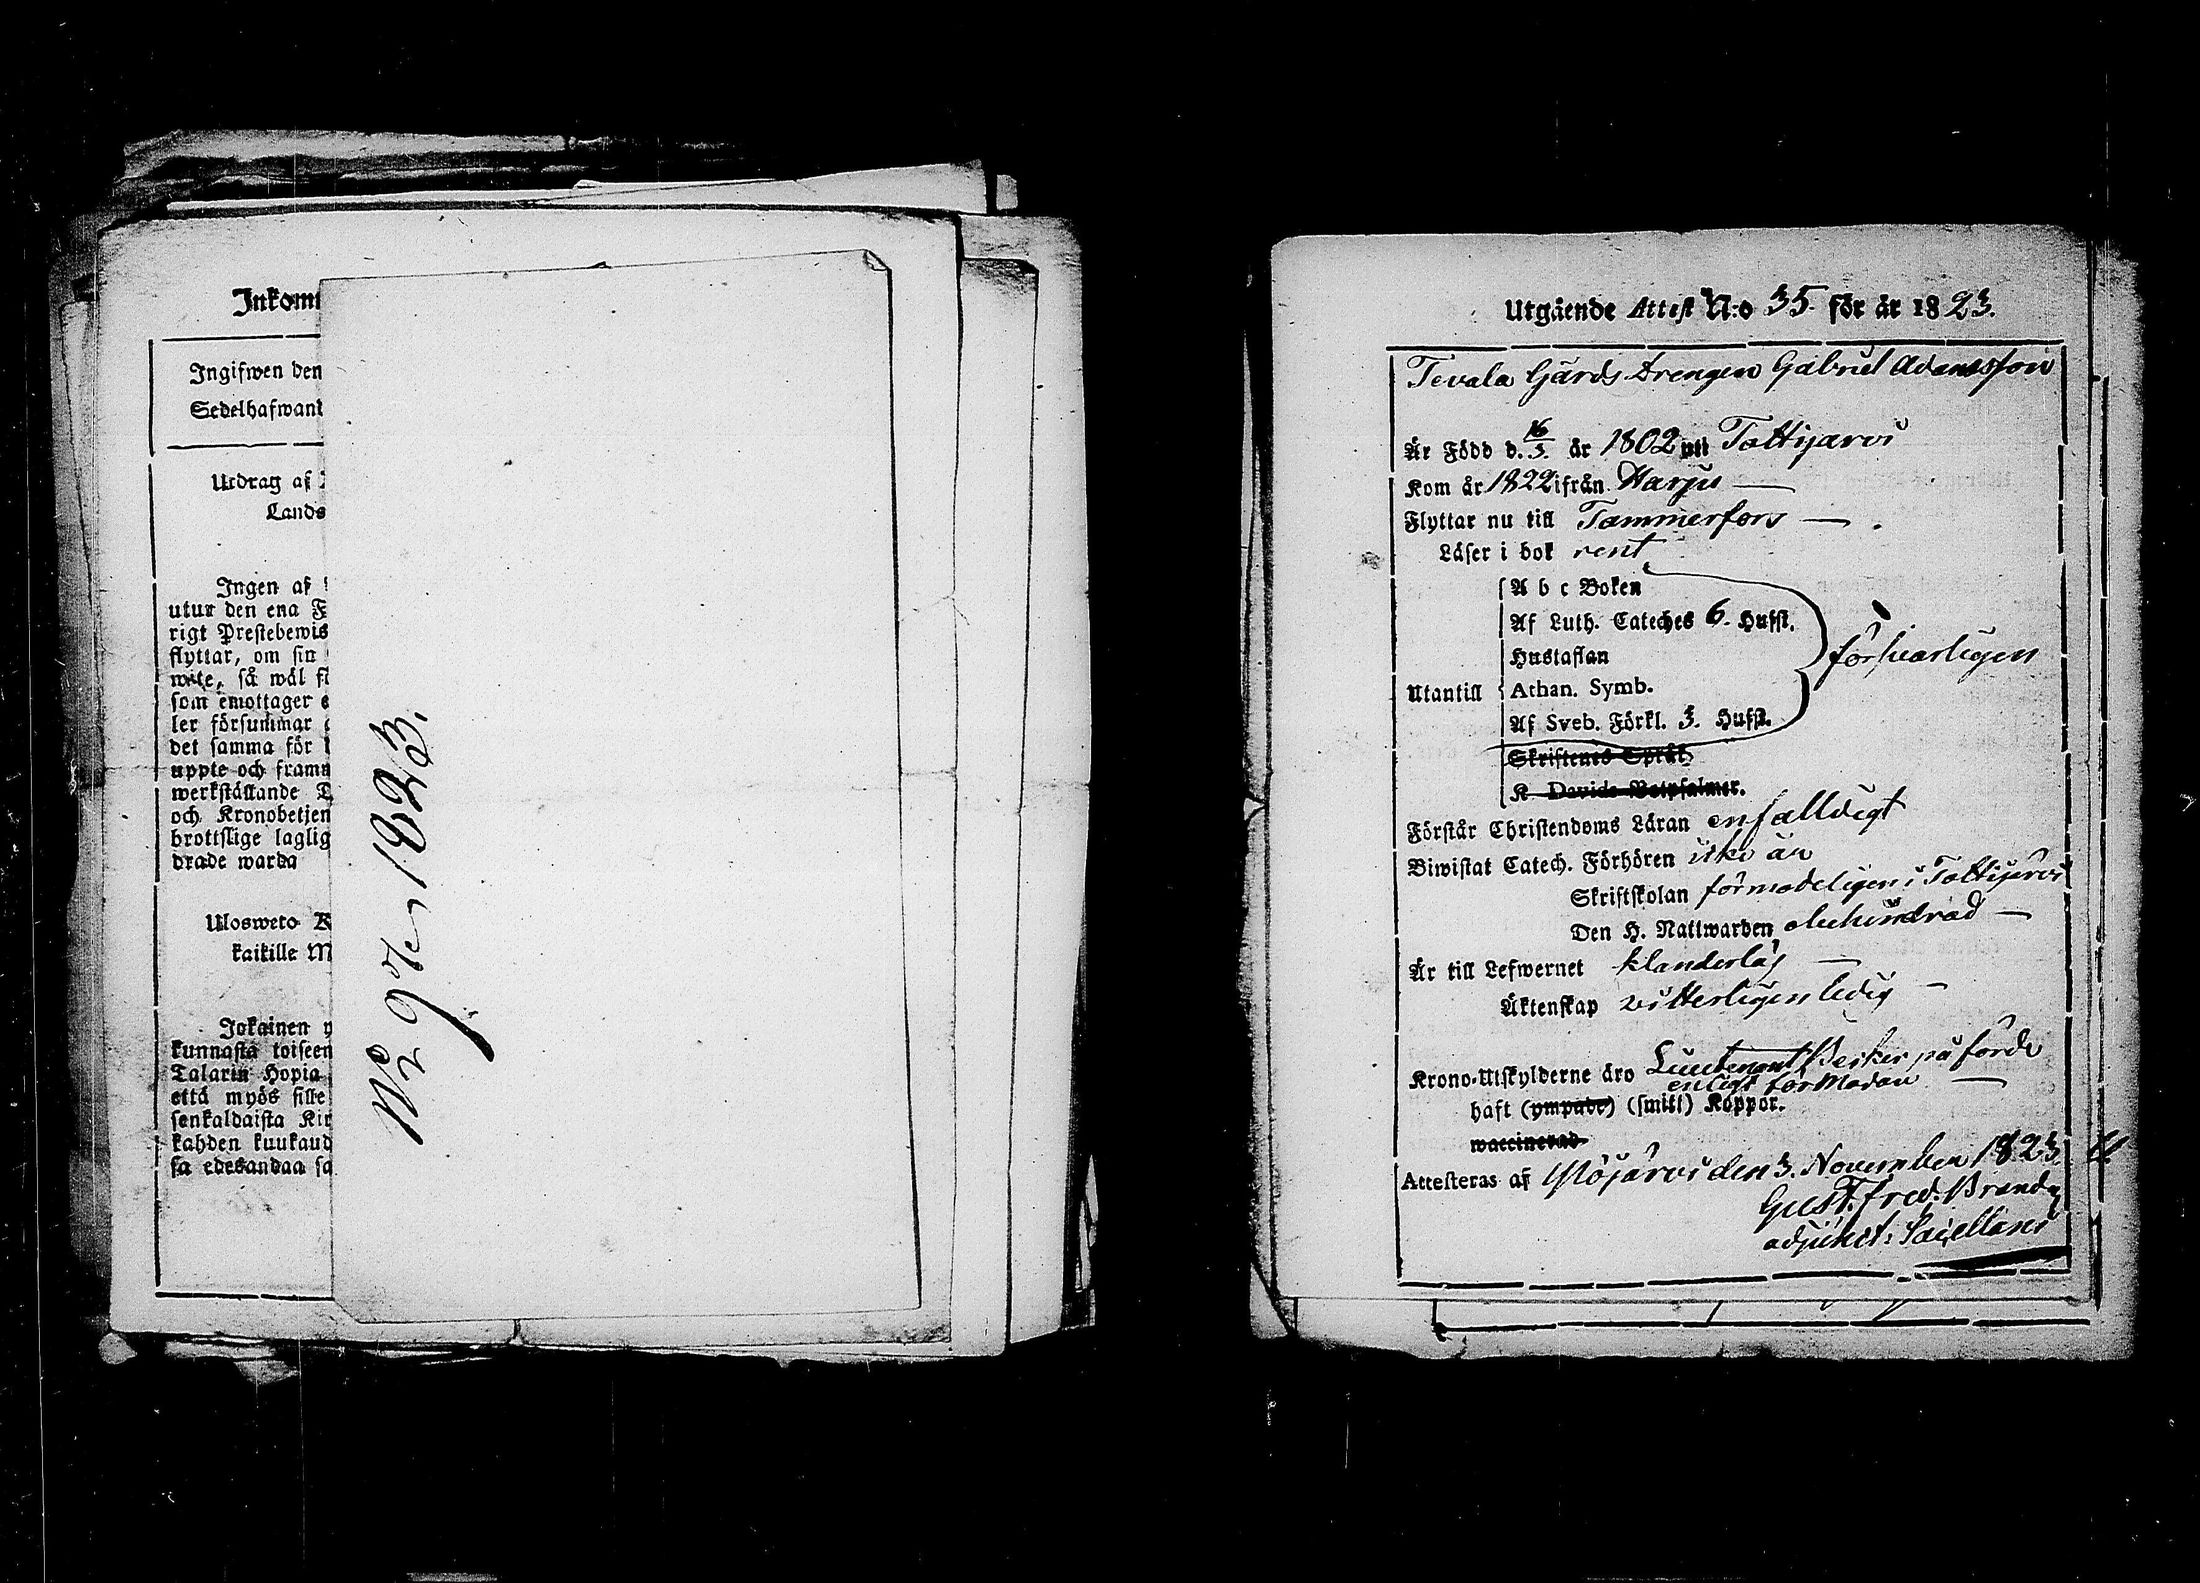 Inkom
Ingifwen den
Sedelhafwand
Utdrag af
Lands
Ingen af
utur den ena F
rigt Prestebewis
flyttar, om sin
wite, så wäl f
som emottager e
ler försummar
det samma för
uppte och framm
werkställande
och Kronobetjen
brottslige laglig
drade warda
Ulosweto K
kaikille M
Jokainen
kunnasta toiseen
Talarin Hopia
että myös sille
senkaldaista Kir
kahden kuukaud
sa edesandaa sa
No 97 1823.
Utgående Attest N:o 35 för år 1823.
Tevala Gårds Drengen Gabriel Adamsson
Är Född d. 16/3. år 1802 uti Tottijärvi
Kom år 1822 ifrån Harju —
Flyttar nu till Tammerfors — .
Läser i bok rent
A b c Boken
Af Luth. Cateches 6. Hufst.
Hustaflan
försvarligen
Utantill Athan. Symb.
Af Sveb. Förkl. 3. Hufst.
Skriftenes Språk
K. Davids Botpsalmer.
Förstår Christendoms Läran enfalldigt
Biwistat Catech. Förhören icke än
Skriftskolan förmodeligen i Tottijärvi
Den H. Nattwarden obehindrad —
Är till Lefwernet klanderlös —
Äktenskap vitterligen ledig —
Krono-Utskylderne äro Lieutenant påförde
enligt förmodan —
haft (ympade) (smitt) Koppor.
waccinerad
Attesteras af Ylöjärvi den 3. November 1823.
Gust. Fred.
adjunct: Sacellani